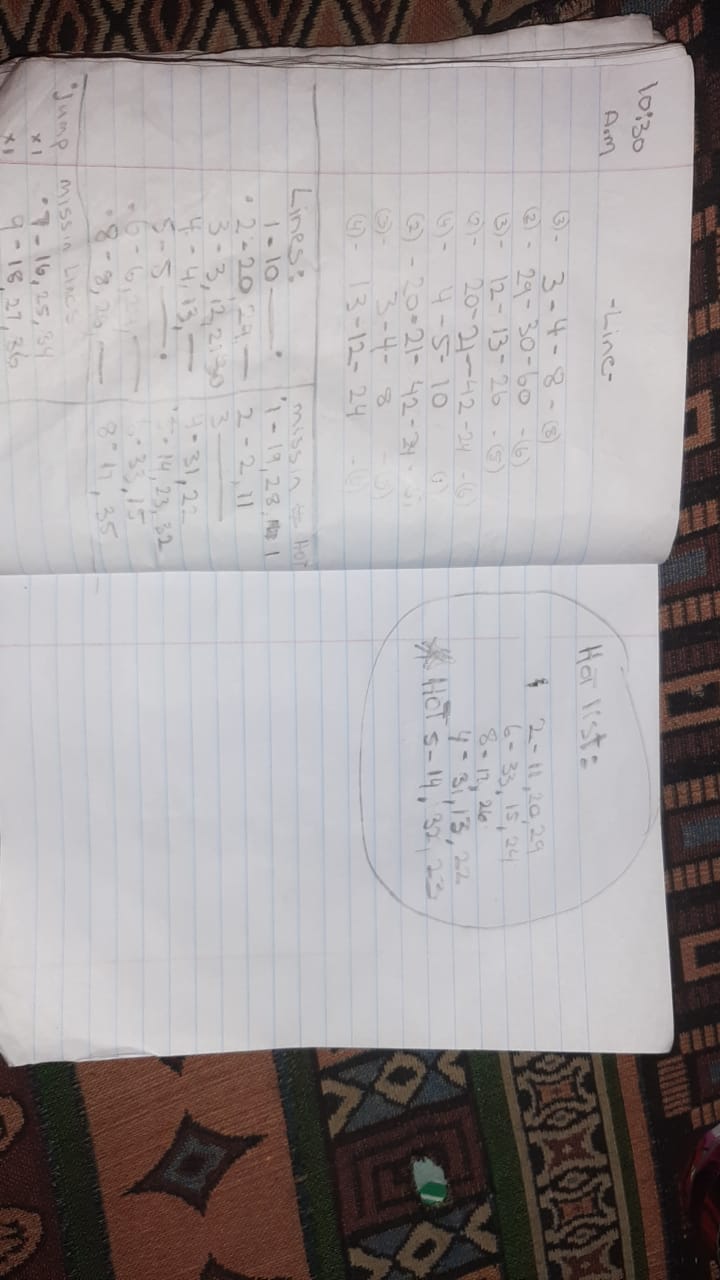 10:30
A.M
-Line-
(3)- 3-4-8-(8)
(2)- 29-30-60-(6)
(3)- 12-13-26-(5)
20-21-42-24-(6)
4-5-10
(2)-20-21-42-21-
3-4-8
(4)- 13-12-24
Lines:
1=10
2=20,29
3=3,12,21,30
4=4,13,
5=5
6=6,24
8=8,26
missin # Hot
1-19,28, 1
2-2,11
3
4=31,22
5=14,23,32
6=33,15
8=17,35
Jump missin Lines
x1 7-16,25,34
x1 9-18,27,36
Hot list:
2-11,20,29
6-33,15,24
8-17,26
4=31,13,22
HOT 5-14,32,23